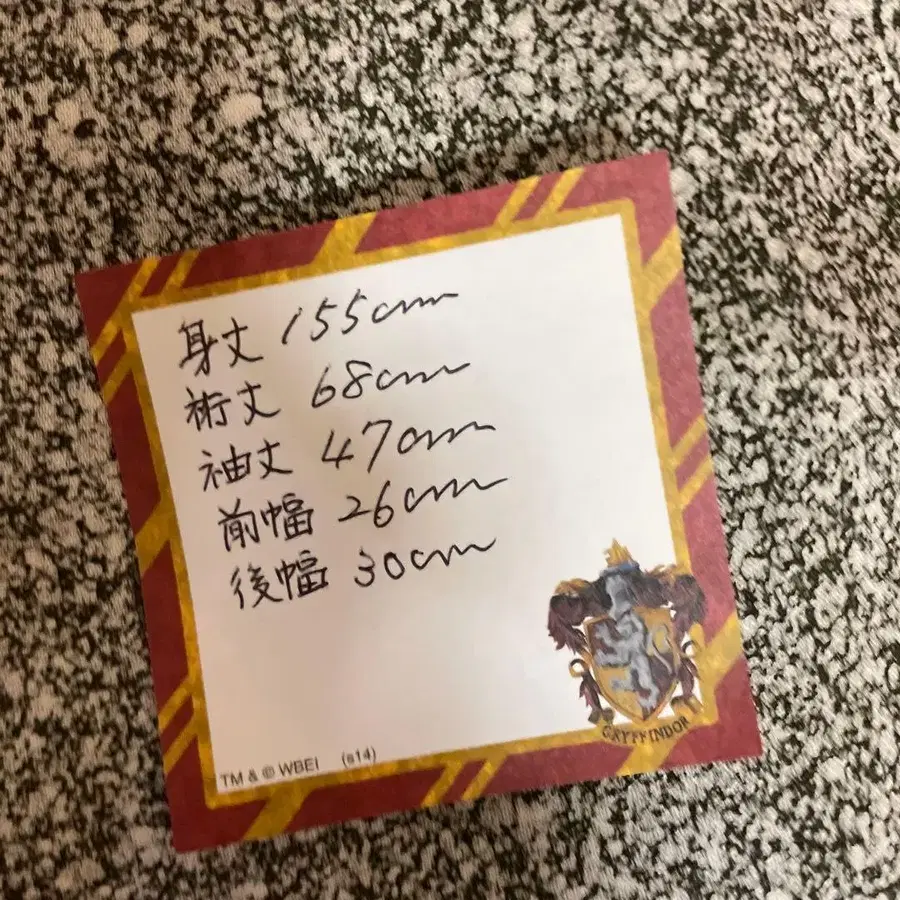 身丈 155cm
裄丈 68cm
袖丈 47cm
前幅 26cm
後幅 30cm
GRYFFINDOR
TM & © WBEI (s14)